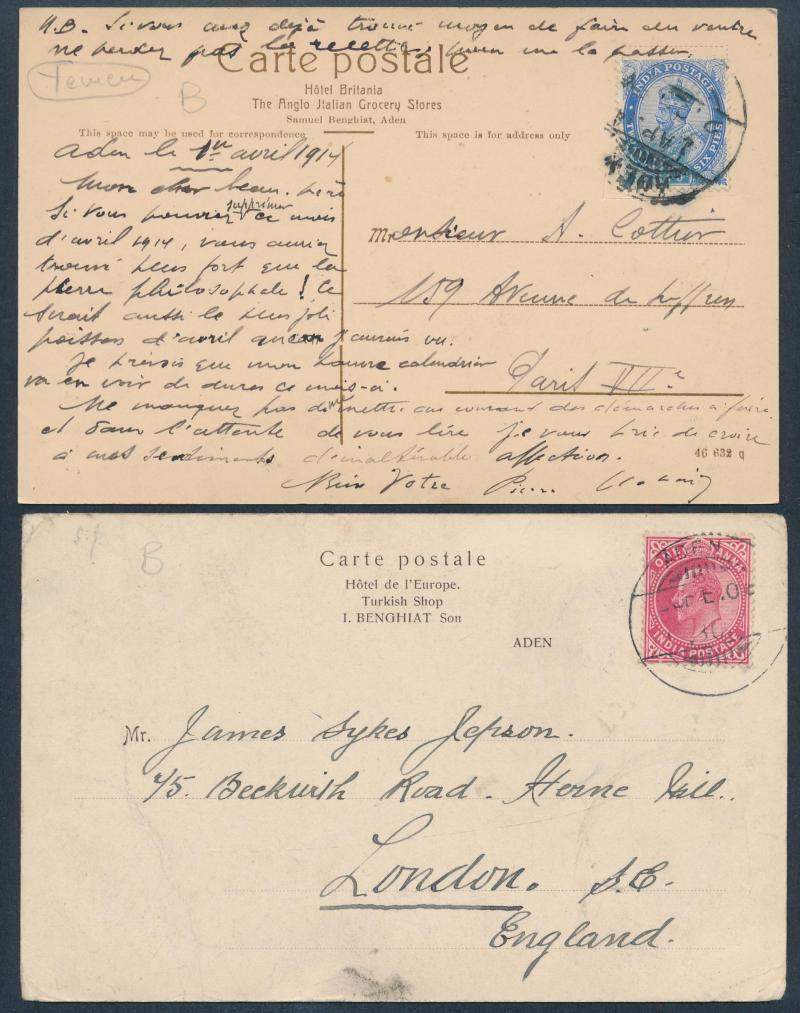 N.B. Si vous avez déjà trouvé moyen de faire du ventre
ne perdez pas la recette, pour me la passer.
Carte postale
Yemen
B
Hôtel Britania
The Anglo Italian Grocery Stores
Samuel Benghiat, Aden
This space may be used for correspondence
This space is for address only
INDIA POSTAGE
SIX PIES
ADEN
AP
Aden le 1er avril 1914
Mon cher beau-père
Si vous pouviez supprimer ce mois
d'avril 1914, vous auriez
trouvé plus fort que la
pierre philosophale! Ce
serait aussi le plus joli
poisson d'avril que j'aurais vu.
Je prévois que mon pauvre calendrier
va en voir de dures ce mois-ci.
Ne manquez pas de me mettre au courant des démarches à faire
et dans l'attente de vous lire je vous prie de croire
à mes sentiments d'inaltérable affection.
Bien Votre Pierre
Monsieur A. Cottier
159 Avenue de Suffren
Paris VIIe
46 632 q
B
Carte postale
Hôtel de l'Europe.
Turkish Shop
I. BENGHIAT Son
ADEN
ADEN
INDIA POSTAGE
Mr. James Sykes Jepson.
75. Beckwith Road. Herne Hill.
London. S.E.
England.